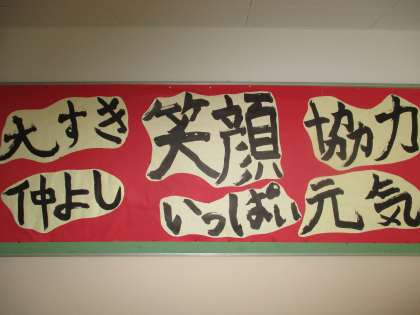 大すき
仲よし
笑顔
いっぱい
協力
元気